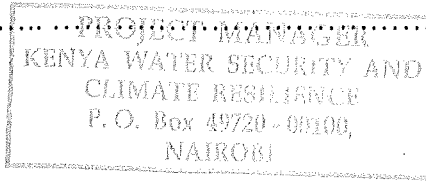 PROJECT MANAGER
KENYA WATER SECURITY AND
CLIMATE RESILIENCE
P. O. Box 49720 - 00100,
NAIROBI